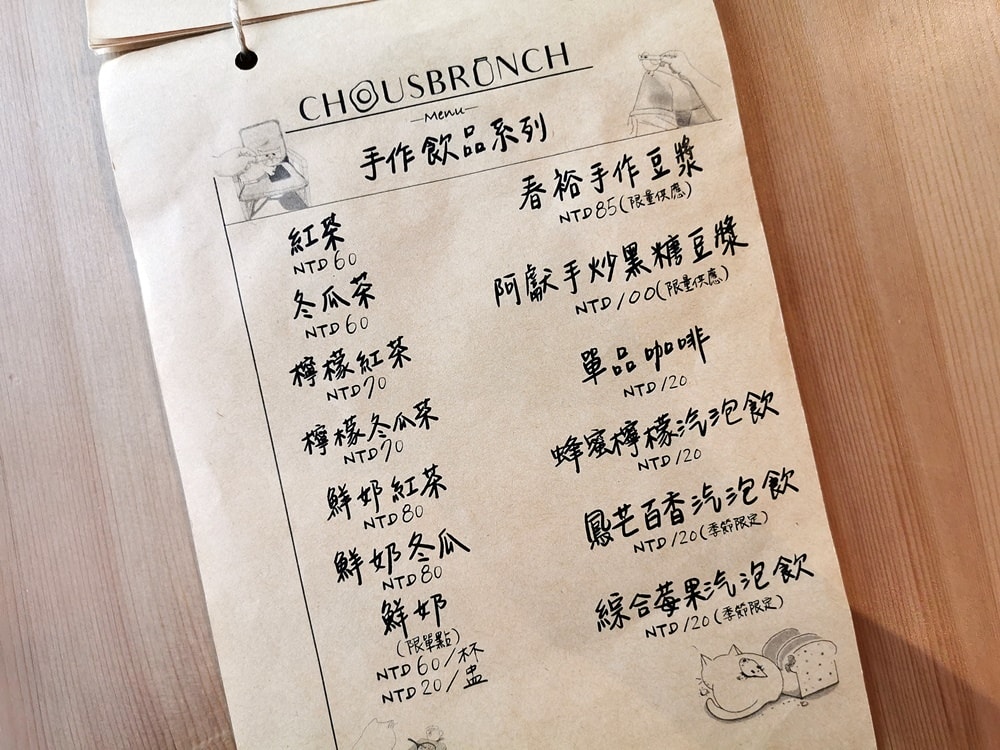 CHOUSBRUNCH
Menu
手作飲品系列
紅茶
NTD 60
冬瓜茶
NTD 60
檸檬紅茶
NTD 70
檸檬冬瓜茶
NTD 70
鮮奶紅茶
NTD 80
鮮奶冬瓜
NTD 80
鮮奶
(限單點)
NTD 60/杯
NTD 20/盅
春裕手作豆漿
NTD 85(限量供應)
阿獻手炒黑糖豆漿
NTD 100(限量供應)
單品咖啡
NTD 120
蜂蜜檸檬汽泡飲
NTD 120
鳳芒百香汽泡飲
NTD 120(季節限定)
綜合莓果汽泡飲
NTD 120(季節限定)